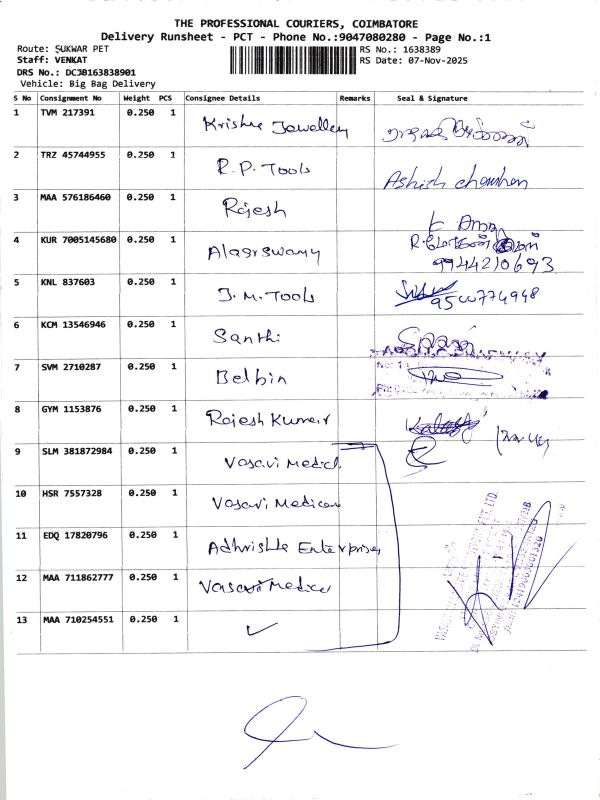 THE PROFESSIONAL COURIERS, COIMBATORE
Delivery Runsheet - PCT - Phone No.:9047080280 - Page No.:1
Route: SUKWAR PET
RS No.: 1638389
Staff: VENKAT
RS Date: 07-Nov-2025
DRS No.: DCJB163838901
Vehicle: Big Bag Delivery
S No Consignment No Weight PCS Consignee Details Remarks Seal & Signature
1 TVM 217391 0.250 1 Krishna Jewellery
2 TRZ 45744955 0.250 1 R.P. Tools Ashish chowhan
3 MAA 576186460 0.250 1 Rajesh
4 KUR 7005145680 0.250 1 Alagarswamy 9944210693
5 KNL 837603 0.250 1 J.M. Tools 9500774948
6 KCM 13546946 0.250 1 Santhi
7 SVM 2710287 0.250 1 Belbin
8 GYM 1153876 0.250 1 Rajesh Kumar
9 SLM 381872984 0.250 1 Vasavi Medical
10 HSR 7557328 0.250 1 Vasavi Medicare
11 EDQ 17820796 0.250 1 Enterprises
12 MAA 711862777 0.250 1 Vasavi
13 MAA 710254551 0.250 1